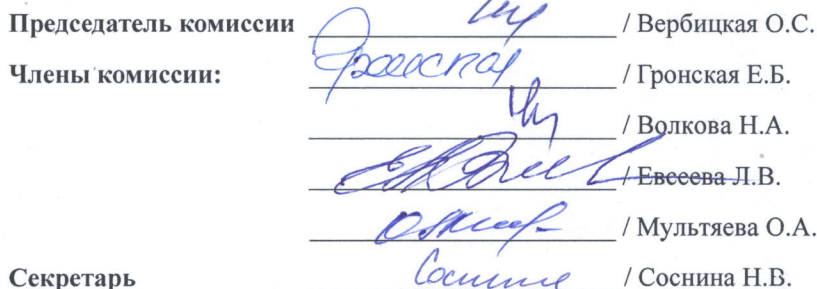 Председатель комиссии / Вербицкая О.С.
Члены комиссии: / Гронская Е.Б.
/ Волкова Н.А.
/ Евсеева Л.В.
/ Мультяева О.А.
Секретарь / Соснина Н.В.